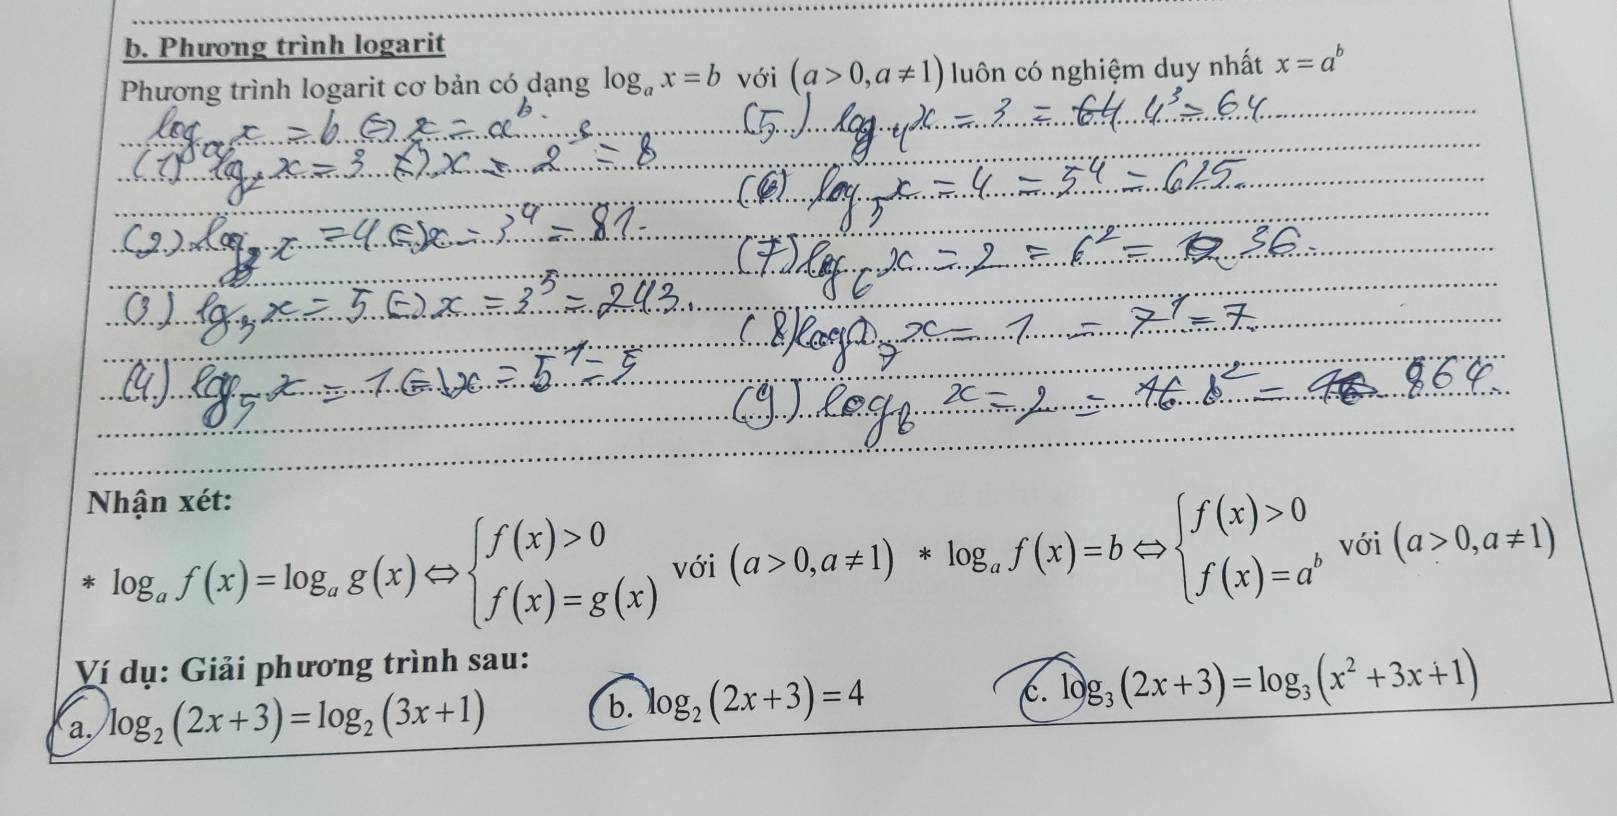 b. Phương trình logarit
Phương trình logarit cơ bản có dạng logₐ x = b với (a > 0, a ≠ 1) luôn có nghiệm duy nhất x = aᵇ
logₐ x = b ⇔ x = aᵇ
(1) log₂ x = 3 ⇔ x = 2³ = 8
(2) log₃ x = 4 ⇔ x = 3⁴ = 81.
(3) lg₃ x = 5 ⇔ x = 3⁵ = 243.
(4) log₅ x = 1 ⇔ x = 5¹ = 5
(5) log₄ x = 3 = 64 4³ = 64
(6) log₅ x = 4 = 5⁴ = 625.
(7) log₆ x = 2 = 6² = 36.
(8) log₇ x = 1 = 7¹ = 7.
(9) log₈ x = 2 = 16 8² = 64.
Nhận xét:
* logₐ f(x) = logₐ g(x) ⇔ { f(x) > 0 f(x) = g(x) với (a > 0, a ≠ 1) * logₐ f(x) = b ⇔ { f(x) > 0 f(x) = aᵇ với (a > 0, a ≠ 1)
Ví dụ: Giải phương trình sau:
a. log₂(2x+3) = log₂(3x+1) b. log₂(2x+3) = 4 c. log₃(2x+3) = log₃(x² + 3x + 1)